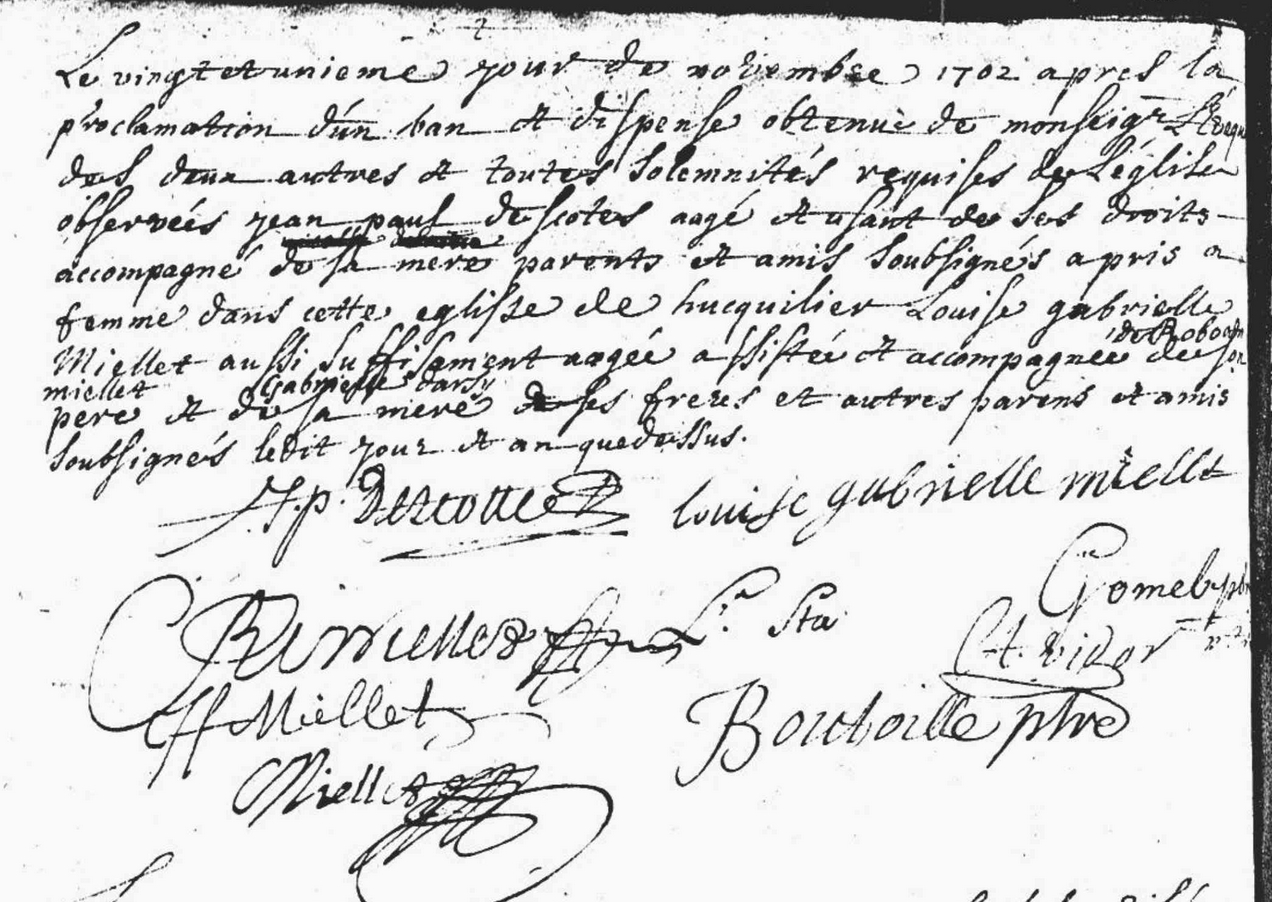 Le vingtetunieme jour de novembre 1702 apres la
proclamation d'un ban et dispense obtenuë de monseigr L'Eveque
des deux autres et toutes solemnités requises de L'église
observées jean paul descotes aagé et usant de ses droits
accompagné de sa mere parents et amis soubsignés a pris a
femme dans cette eglisse de hucquilier Louise gabrielle
de Robert
Miellet aussi suffisament aagée assistée et accompagnée de son
miellet Gabrielle darsy
pere et de sa mere de ses freres et autres parens et amis
soubsignés ledit jour et an quedessus.
J.p. Descottes louise gabrielle miellet
Gomel pbr
Miellet
Boutoille pbre
Miellet